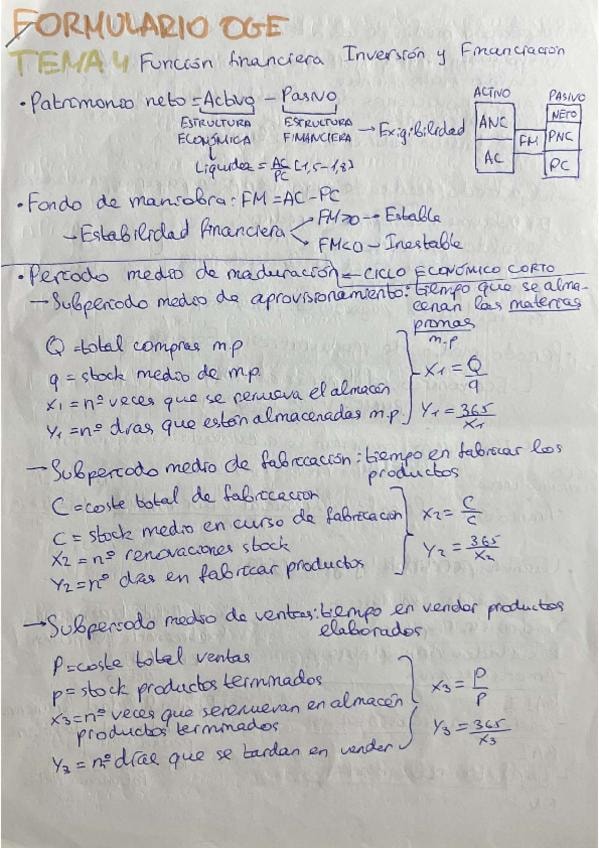 FORMULARIO OGE
TEMA 4 Función financiera Inversión y Financiación
• Patrimonio neto = Activo - Pasivo
ESTRUCTURA ECONÓMICA
ESTRUCTURA FINANCIERA → Exigibilidad
Liquidez = AC/PC [1,5-1,8]
ACTIVO PASIVO
ANC AC FM NETO PNC PC
• Fondo de maniobra: FM = AC - PC
→ Estabilidad financiera
FM>0 → Estable
FM<0 → Inestable
• Periodo medio de maduración ← CICLO ECONÓMICO CORTO
→ Subperiodo medio de aprovisionamiento: tiempo que se alma-
cenan las materias
primas
m.p
Q = total compras m.p
q = stock medio de m.p.
X1 = nº veces que se renueva el almacén
Y1 = nº días que están almacenadas m.p.
X1 = Q/q
Y1 = 365/X1
→ Subperiodo medio de fabricación: tiempo en fabricar los
productos
C = coste total de fabricación
C = stock medio en curso de fabricación
X2 = nº renovaciones stock
Y2 = nº días en fabricar productos
X2 = C/C
Y2 = 365/X2
→ Subperiodo medio de ventas: tiempo en vender productos
elaborados
P = coste total ventas
p = stock productos terminados
X3 = nº veces que se renuevan en almacén
productos terminados
Y3 = nº días que se tardan en vender
X3 = P/P
Y3 = 365/X3